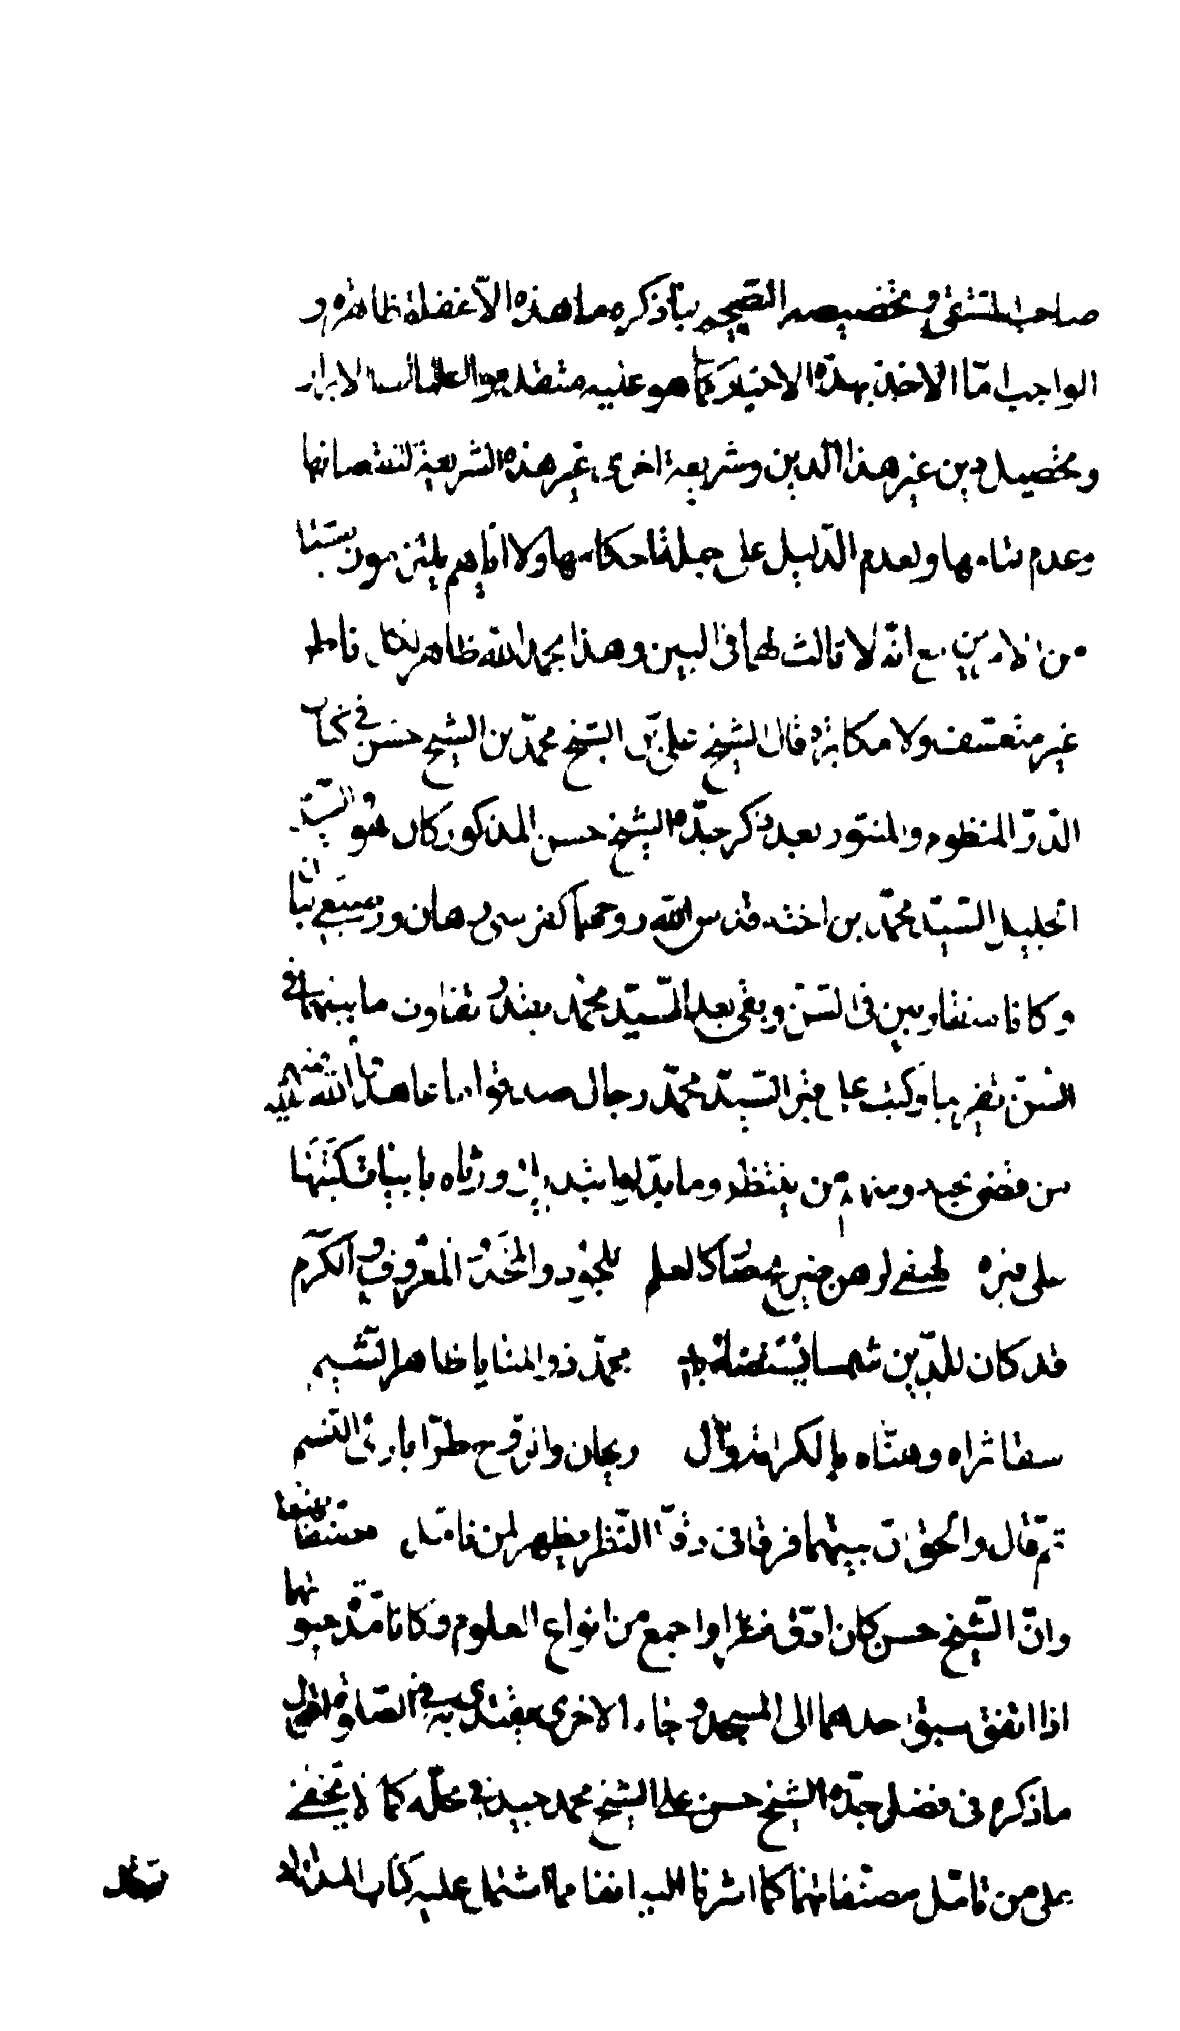 صاحب المنتقى وتخصيصه الصحيح بما ذكره ما هذه الّا غفلة ظاهرة و
الواجب امّا الاخذ بهذه الاخبار كما هو عليه متقدموا العلماء الابرار
وتحصيل دين غير هذا الدين وشريعة اخرى غير هذه الشريعة لنقصانها
وعدم تمامها ولعدم الدّليل على جملة احكامها ولا اراهم يلتزمون شيئا
من الامرين مع انّه لا ثالث لهما في البين وهذا بحمد الله ظاهر لكل ناظر
غير متعسّف ولا مكابر قال الشيخ علي بن الشيخ محمّد بن الشيخ حسن في كتاب
الدّر المنظوم والمنثور بعد ذكر جدّه الشيخ حسن المذكور كان هو والسيّد
الجليل السّيّد محمّد بن اخته قدس الله روحهما كفرسي رهان ورضيعي لبان
وكانا متقاربين في السّن وبقي بعد السّيّد محمّد بقدر تفاوت ما بينهما في
السّن تقريبا وكتب على قبر السّيّد محمّد رجال صدقوا ما عاهدوا الله عليه فمنهم
من قضى نحبه ومنهم من ينتظر وما بدّلوا تبديلا ورثاه بابيات كتبها
على قبره لهفي لرهن ضريح صار كالعلم للجود والمجد والمعروف والكرم
قد كان للدّين شمسا يستضاء به محمّد ذو المزايا طاهر الشّيم
سقا ثراه وهنّاه الكرامة وال ريحان والروح طرّا بارئ النّسم
ثمّ قال والحق انّ بينهما فرقا في دقّة النّظر يظهر لمن تامّل مصنّفاتهما
وانّ الشّيخ حسن كان ادّق نظرا واجمع من انواع العلوم وكانا مدّة حيوتهما
اذا اتفق سبق احدهما الى المسجد وجاء الاخرى يقتدي به في الصّلوة
ماذكره في فضل جدّه الشيخ حسن على السّيّد محمد جيد في محلّه كما لا يخفى
على من تامّل مصنّفاتهما كما اشرنا اليه انفا مما اشتمل عليه كتاب المدارك